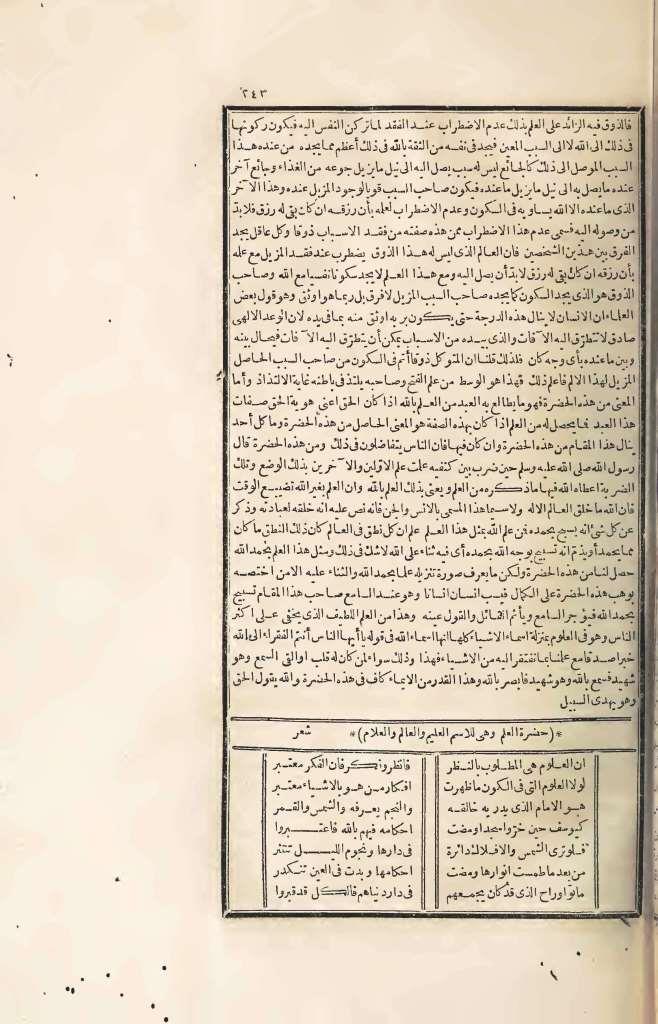 ٢٤٣
فالذوق فيه الزائد على العلم بذلك عدم الاضطراب عند الفقد لما تركن النفس اليه فيكون ركونها
فى ذلك الى الله لا الى السبب المعين فيجد فى نفسه من الثقة بالله فى ذلك أعظم مما يجده من عنده هذا
السبب الموصل الى ذلك كالجائع ليس له سبب يصل اليه الى نيل ما يزيل جوعه من الغذاء وجائع آخر
عنده ما يصل به الى نيل ما يزيل ما عنده فيكون صاحب السبب قويا لوجود المزيل عنده وهذا الآخر
الذى ما عنده الا الله يساويه فى السكون وعدم الاضطراب لعلمه بأن رزقه ان كان بقى له رزق فلا بد
من وصوله اليه فسمى عدم هذا الاضطراب ممن هذه صفته من فقد الاسباب ذوقا وكل عاقل يجد
الفرق بين هذين الشخصين فان العالم الذى ليس له هذا الذوق يضطرب عند فقد المزيل مع علمه
بأن رزقه ان كان بقى له رزق لا بد أن يصل اليه ومع هذا العلم لا يجد سكونا نفسيا مع الله وصاحب
الذوق هو الذى يجد السكون كما يجده صاحب السبب المزيل لا فرق بل ربما هو اوثق وهو قول بعض
العلماء ان الانسان لا ينال هذه الدرجة حتى يكون بربه اوثق منه بما فى يده لان الوعد الالهى
صادق لا تتطرق اليه الآفات والذى بيده من الاسباب يمكن أن يتطرق اليه الآفات فيحال بينه
وبين ما عنده بأى وجه كان فلذلك قلنا ان المتوكل ذوقا أتم فى السكون من صاحب السبب الحاصل
المزيل لهذا الالم فاعلم ذلك فهذا هو الوسط من علم الفتح وصاحبه يلتذ فى باطنه غاية الالتذاذ وأما
المعنى من هذه الحضرة فهو ما يطالع به العبد من العلم بالله اذا كان الحق اعنى هوية الحق صفات
هذا العبد فما يحصل له من العلم اذا كان بهذه الصفة هو المعنى الحاصل من هذه الحضرة وما كل أحد
ينال هذا المقام من هذه الحضرة وان كان فيها فان الناس يتفاضلون فى ذلك ومن هذه الحضرة قال
رسول الله صلى الله عليه وسلم حين ضرب بين كتفيه علمت علم الاولين والآخرين بذلك الوضع وتلك
الضربة أعطاه الله فيها ما ذكره من العلم ويعنى بذلك العلم بالله وان العلم بغير الله تضييع الوقت
فان الله ما خلق العالم الا له ولا سيما هذا المسمى بالانس والجن فانه نص عليه انه خلقه لعبادته وذكر
عن كل شئ انه يسبح بحمده فمن علم الله بمثل هذا العلم علم ان كل نطق فى العالم كان ذلك النطق ما كان
مما يحمد أو يذم انه تسبيح بوجه الله بحمده أى فيه ثناء على الله لا شك فى ذلك ومثل هذا العلم بحمد الله
حصل لنا من هذه الحضرة ولكن ما يعرف صورة تنزيله علما بحمد الله والثناء عليه الا من اختصه
بوهب هذه الحضرة على الكمال فيسب انسان انسانا وهو عند السامع صاحب هذا المقام تسبيح
بحمد الله فيؤجر السامع ويأثم القائل والقول عينه وهذا من العلم اللطيف الذى يخفى على اكثر
الناس وهو فى العلوم بمنزلة اسماء الاشياء كلها انها اسماء الله فى قوله يا أيها الناس أنتم الفقراء الى الله
خبرا صدقا مع علمنا بما نفتقر اليه من الاشياء فهذا وذلك سواء لمن كان له قلب او القى السمع وهو
شهيد فسمع بالله وهو شهيد فابصر بالله وهذا القدر من الايماء كاف فى هذه الحضرة والله يقول الحق
وهو يهدى السبيل
*(حضرة العلم وهى للاسم العليم والعالم والعلام)* شعر
ان العلوم هى المطلوب بالنظر فانظر ونكر فان الفكر معتبر
لولا العلوم التى فى الكون ما ظهرت افكار من هو بالاشياء معتبر
هو الامام الذى يدريه خالقه والنجم يعرفه والشمس والقمر
كيوسف حين خروا سجدا ومضت احكامه فيهم بالله فاعتبروا
فلو ترى الشمس والافلاك دائرة فى دارها ونجوم الليل تنتثر
من بعد ما طمست انوارها ومضت احكامها وبدت فى العين تنكدر
ماتوا وراح الذى قد كان يجمعهم فى دار دنياهم فالكل قد قبروا